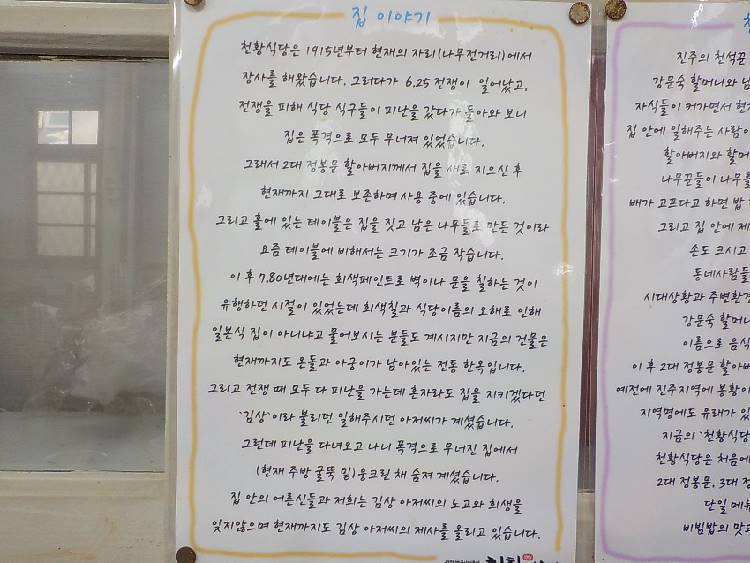 집 이야기
천황식당은 1915년부터 현재의 자리(나무전거리)에서
장사를 해왔습니다. 그러다가 6.25 전쟁이 일어났고,
전쟁을 피해 식당 식구들이 피난을 갔다가 돌아와 보니
집은 폭격으로 모두 무너져 있었습니다.
그래서 2대 정봉문 할아버지께서 집을 새로 지으신 후
현재까지 그대로 보존하며 사용 중에 있습니다.
그리고 홀에 있는 테이블은 집을 짓고 남은 나무들로 만든 것이라
요즘 테이블에 비해서는 크기가 조금 작습니다.
이 후 7.80년대에는 회색페인트로 벽이나 문을 칠하는 것이
유행하던 시절이 있었는데 회색칠과 식당이름의 오해로 인해
일본식 집이 아니냐고 물어보시는 분들도 계시지만 지금의 건물은
현재까지도 온돌과 아궁이가 남아있는 전통 한옥입니다.
그리고 전쟁 때 모두 다 피난을 가는데 혼자라도 집을 지키겠다던
'김상'이라 불리던 일해주시던 아저씨가 계셨습니다.
그런데 피난을 다녀오고 나니 폭격으로 무너진 집에서
(현재 주방 굴뚝 밑)웅크린 채 숨져 계셨습니다.
집 안의 어른신들과 저희는 김상 아저씨의 노고와 희생을
잊지않으며 현재까지도 김상 아저씨의 제사를 올리고 있습니다.
진주의 천석꾼
강문숙 할머니와 남
자식들이 커가면서 현
집 안에 일해주는 사람이
할아버지와 할머
나무꾼들이 나무를
배가 고프다고 하면 밥
그리고 집 안에 제
손도 크시고
동네사람들
시대상황과 주변환경
강문숙 할머니
이름으로 음식
이 후 2대 정봉문 할아버
예전에 진주지역에 봉황이
지역명에도 유래가 있
지금의 '천황식당
천황식당은 처음에
2대 정봉문, 3대 정
단일 메뉴
비빔밥의 맛과